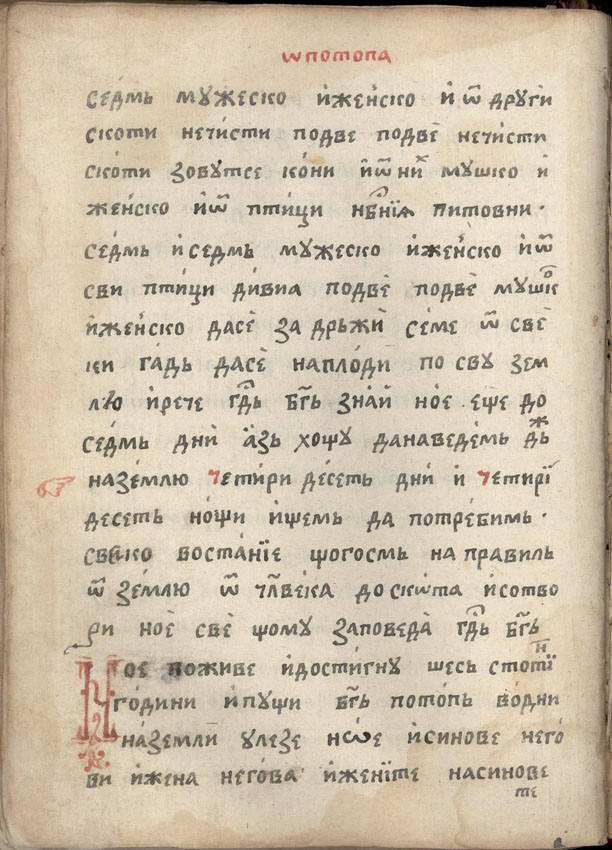 ѡ потопа
седмь мужеско и женско и ѿ други
скоти нечисти по две по две нечисти
скоти зовутсе кони и ѿ них мушко и
женско и ѿ птици нб҃нїѧ питовни ·
седмь и седмь мужеско и женско и ѿ
сви птици дивиа по две по две мушко
и женско да се задрьжи семе ѿ све
ки гадь да се наплоди по сву зем
лю и рече гд҃ь бг҃ь знай ное еще до
седмь дни азь хощу да наведемь дьж
на землю четири десеть дни и четирї
десеть нощи и щемь да потребимь ·
свеко востанїе що госмь направиль
ѿ землю ѿ чл҃века до скѡта и сотво
ри ное све що му заповеда гд҃ь бг҃ь
Ное поживе и достигну шесь стотїн
години и пущи бг҃ь потопь водни
на земли улезе нѡе и синове него
ви и жена негова и женїте на синове
те